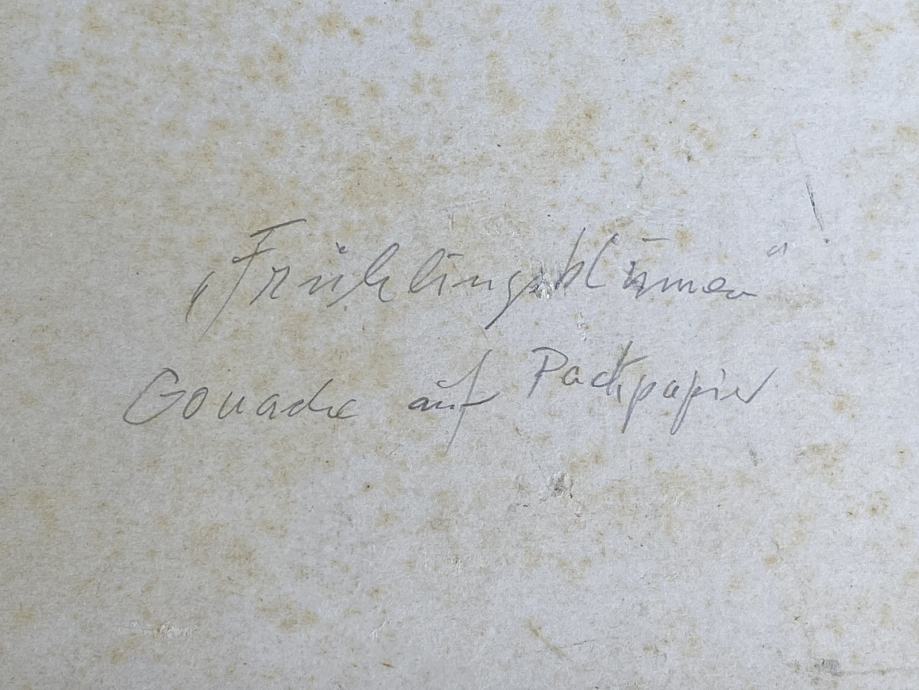 „Frühlingsblumen"
Gouache auf Packpapier